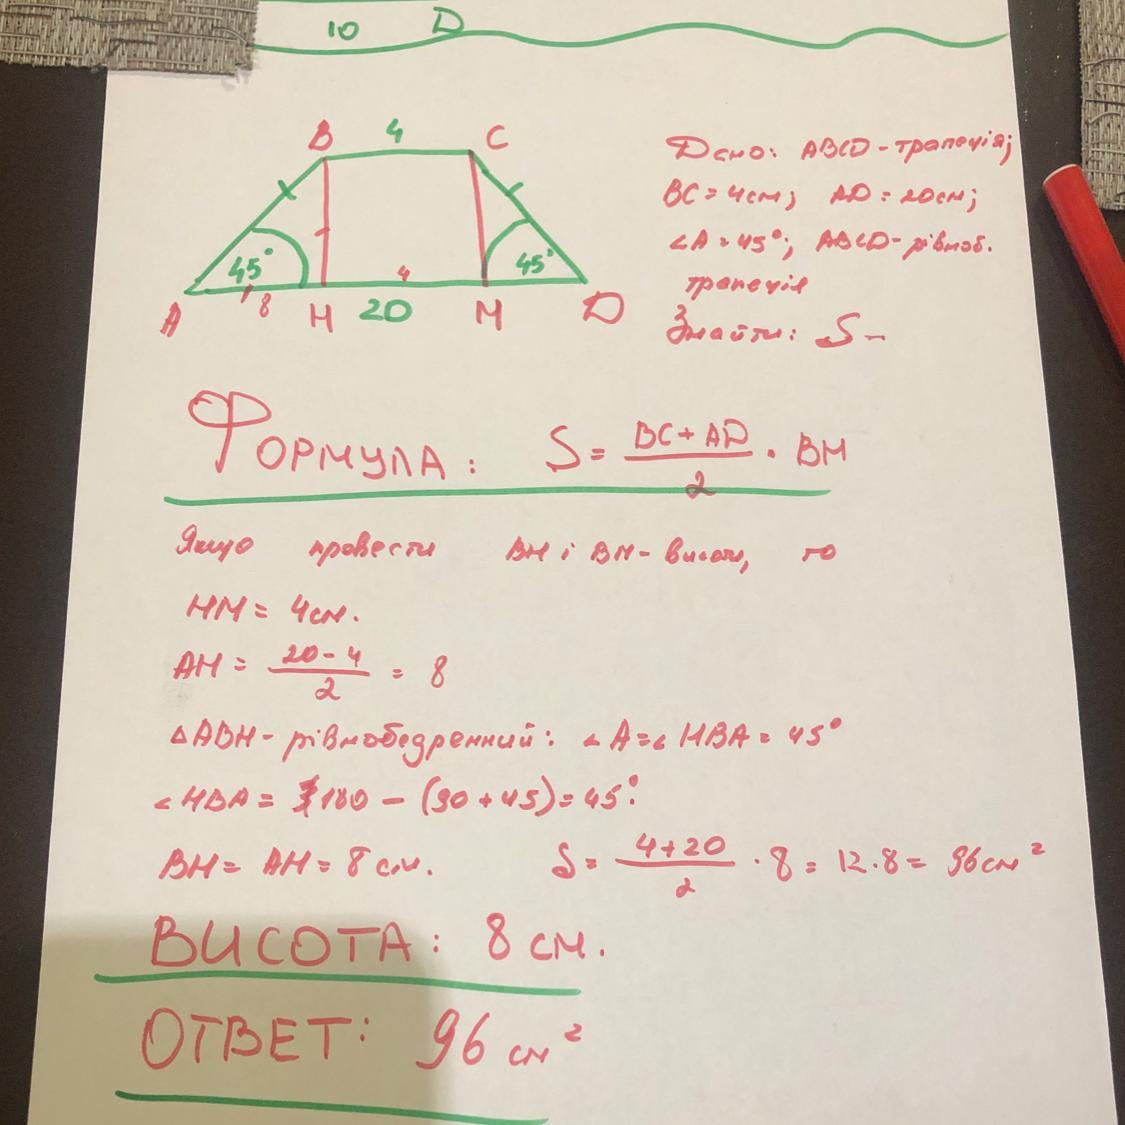 10 D
B 4 C
45° 45°
A 8 H 4 20 M D
Дано: ABCD - трапеція;
BC = 4см; AD = 20см;
∠A = 45°; ABCD - рівноб.
трапеція
Знайти: S -
ФОРМУЛА: S = (BC + AD)/2 · BH
Якщо провести BH і BM - висоти, то
HM = 4см.
AH = (20 - 4)/2 = 8
△ABH - рівнобедренний: ∠A = ∠HBA = 45°
∠HBA = 180 - (90 + 45) = 45°.
BH = AH = 8 см. S = (4 + 20)/2 · 8 = 12 · 8 = 96 см²
ВИСОТА: 8 см.
ОТВЕТ: 96 см²